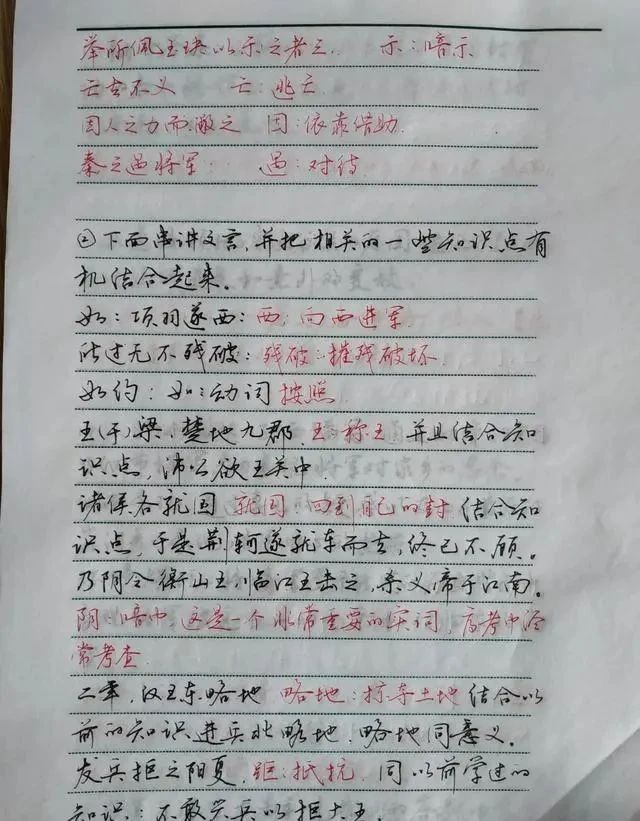 举所佩玉玦以示之者三 示：暗示
亡去不义 亡：逃亡
因人之力而敝之 因：依靠借助
秦之遇将军： 遇：对待
②下面串讲文言，并把相关的一些知识点有
机结合起来。
如：项羽遂西：西：向西进军
所过无不残破：残破：摧残破坏
如约：如：动词 按照
王（于）梁、楚地九郡，王：称王 并且结合知
识点，沛公欲王关中
诸侯各就国 就国 回到自己的封 结合知
识点，于是荆轲遂就车而去，终已不顾。
乃阴令衡山王、临江王击之，杀义帝于江南。
阴：暗中，这是一个非常重要的实词，高考中经
常考查
二年，汉王东略地 略地：掠夺土地 结合以
前的知识进兵北略地，略地同意义。
发兵拒之阳夏，距：抵抗，同以前学过的
知识：不敢兴兵以拒大王